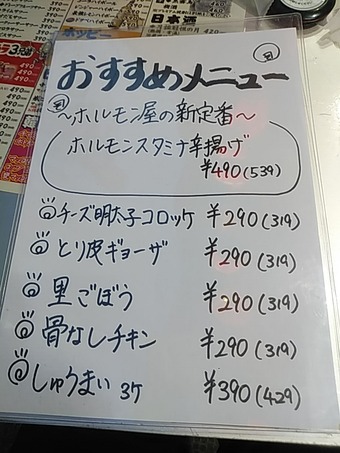 日本酒
ホッピー
おすすめメニュー
～ホルモン屋の新定番～
ホルモンスタミナ辛揚げ
¥490(539)
チーズ明太子コロッケ ¥290(319)
とり皮ギョーザ ¥290(319)
里ごぼう ¥290(319)
骨なしチキン ¥290(319)
しゅうまい 3ケ ¥390(429)